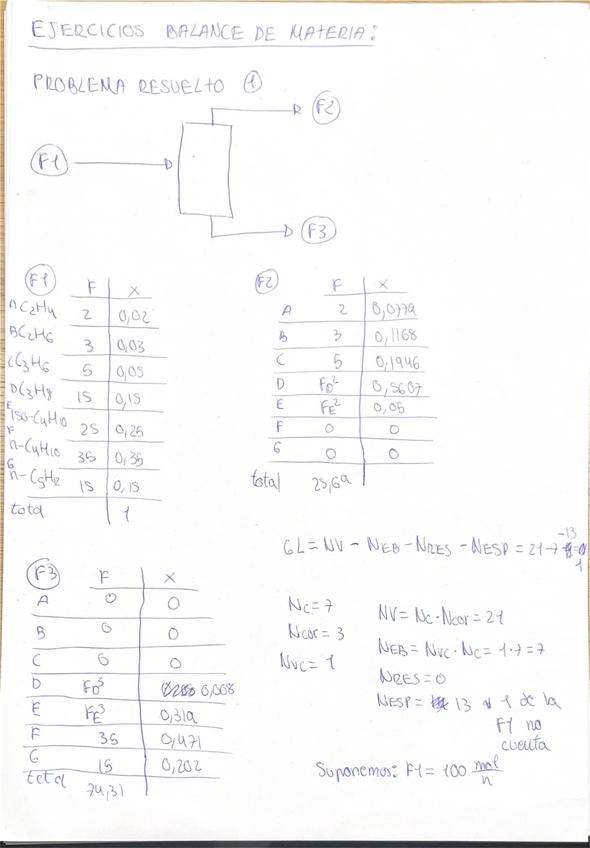 EJERCICIOS BALANCE DE MATERIA:
PROBLEMA RESUELTO 1
F2
F1
F3
F1
F X
A C2H4 2 0,02
B C2H6 3 0,03
C C3H6 5 0,05
D C3H8 15 0,15
E iso-C4H10 25 0,25
F n-C4H10 35 0,35
G n-C5H12 15 0,15
total 1
F2
F X
A 2 0,0779
B 3 0,1168
C 5 0,1946
D FD² 0,5607
E FE² 0,05
F 0 0
G 0 0
total 25,69
GL = NV - NEB - NRES - NESP = 21-7-13
1
F3
F X
A 0 0
B 0 0
C 0 0
D FD³ 0,008
E FE³ 0,319
F 35 0,471
G 15 0,202
total 74,31
Nc = 7
Ncor = 3
Nvc = 1
NV = Nc · Ncor = 21
NEB = Nvc · Nc = 1·7 = 7
NRES = 0
NESP = 13 1 de la
F1 no
cuenta
Suponemos: F1 = 100 mol/h